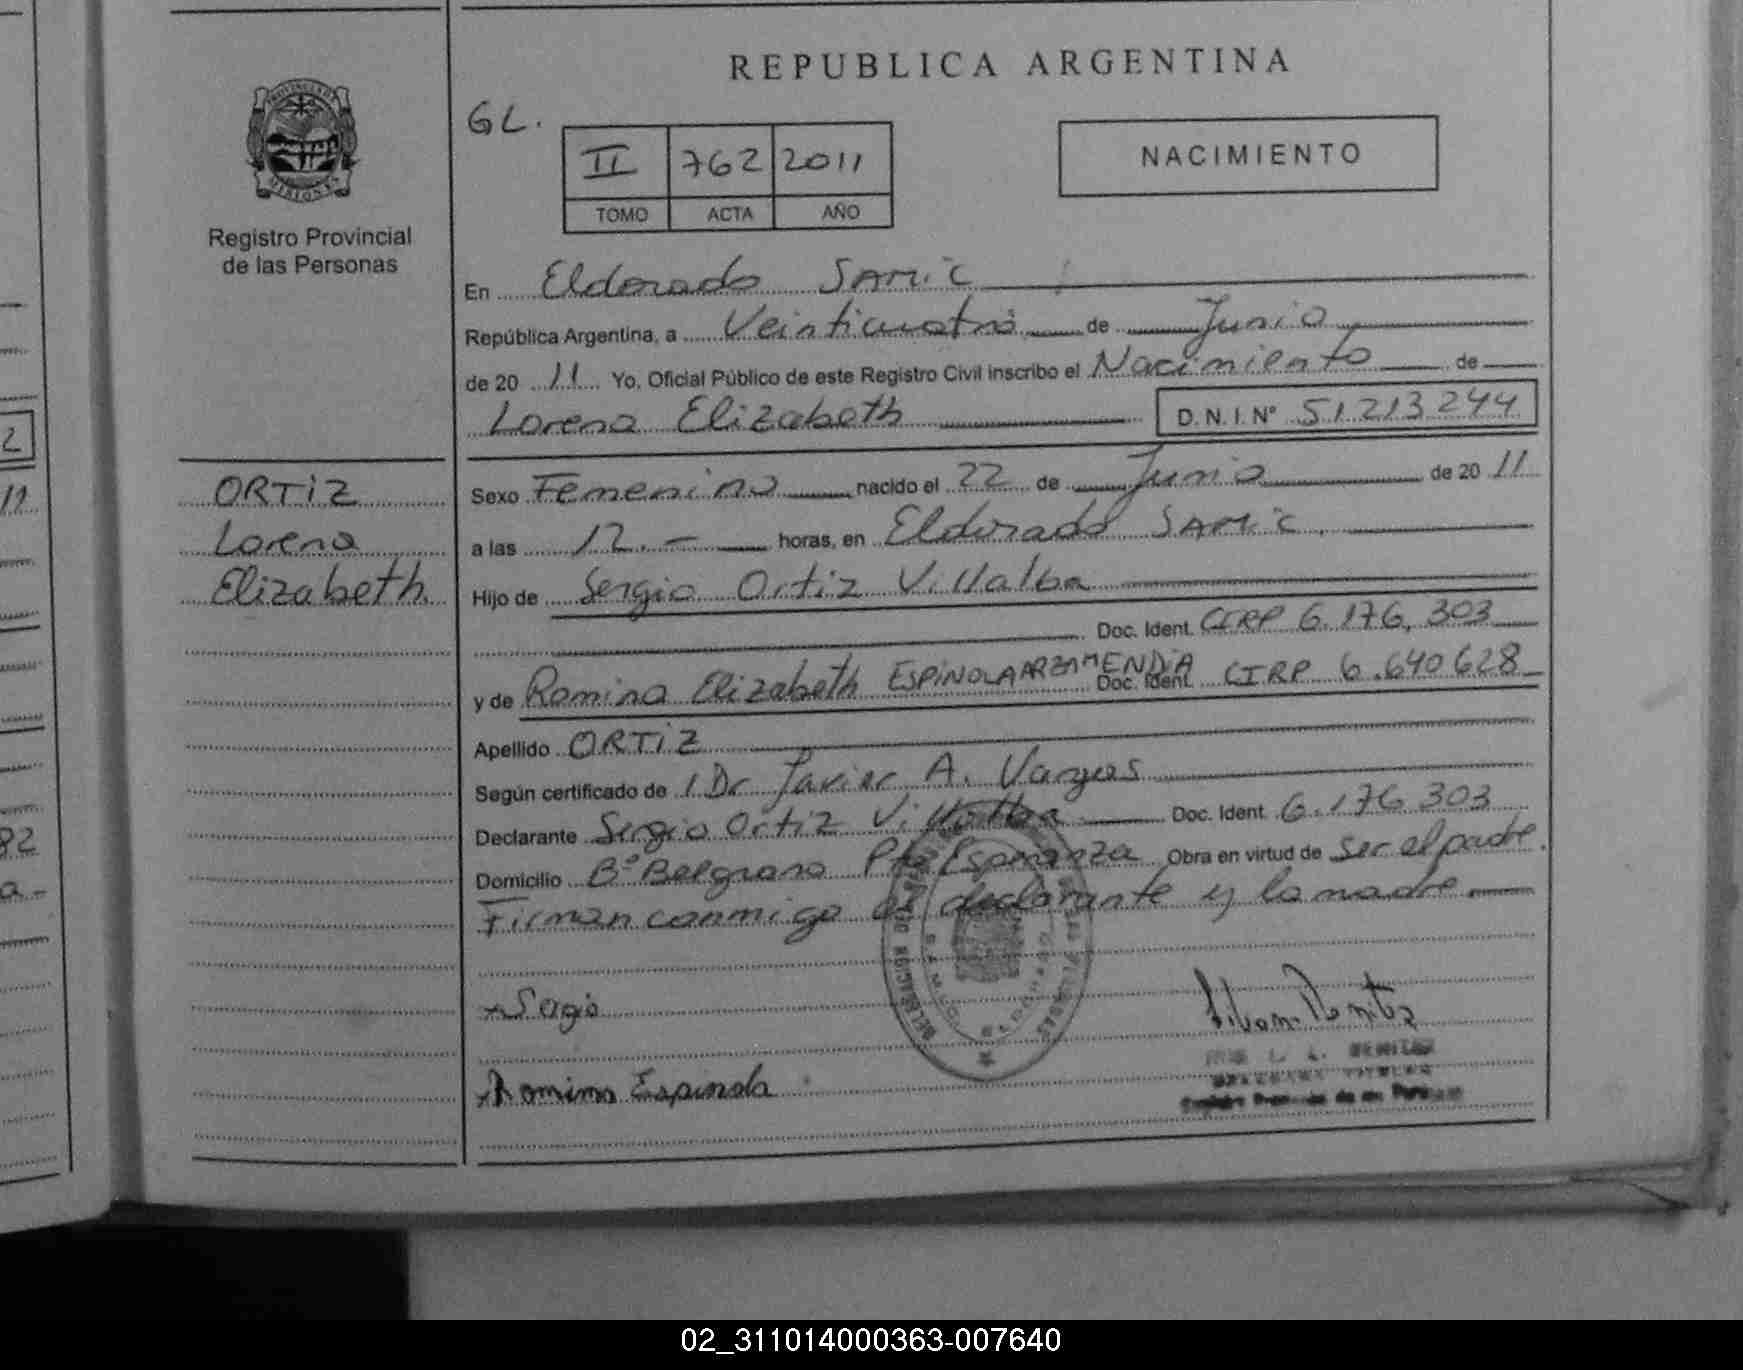 REPUBLICA ARGENTINA
GL.
II 762 2011
TOMO ACTA AÑO
NACIMIENTO
PROVINCIA DE
MISIONES
Registro Provincial
de las Personas
ORTiZ
Lorena
Elizabeth.
En Eldorado SAMiC
República Argentina, a Veinticuatro de Junio
de 20 11 Yo, Oficial Público de este Registro Civil inscribo el Nacimiento de
Lorena Elizabeth D.N.I.N° 51213244
Sexo Femenino nacido el 22 de Junio de 20 11
a las 12.- horas, en Eldorado SAMiC.
Hijo de Sergio Ortiz Villalba
Doc. Ident. CIRP 6.176.303
y de Romina Elizabeth ESPiNOLA ARZAMENDiA Doc. Ident. CIRP 6.640628
Apellido ORTiZ
Según certificado de 1 Dr Javier A. Vargas
Declarante Sergio Ortiz Villalba Doc. Ident. 6.176 303
Domicilio B° Belgrano Pto Esperanza Obra en virtud de ser el padre.
Firman conmigo el declarante y la madre.
Sergio
Romina Espinola
2
11
82
a-
02_311014000363-007640